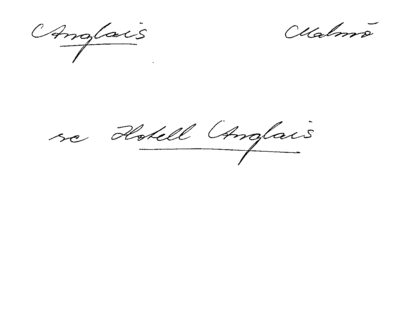 Anglais Malmö
se Hotell Anglais